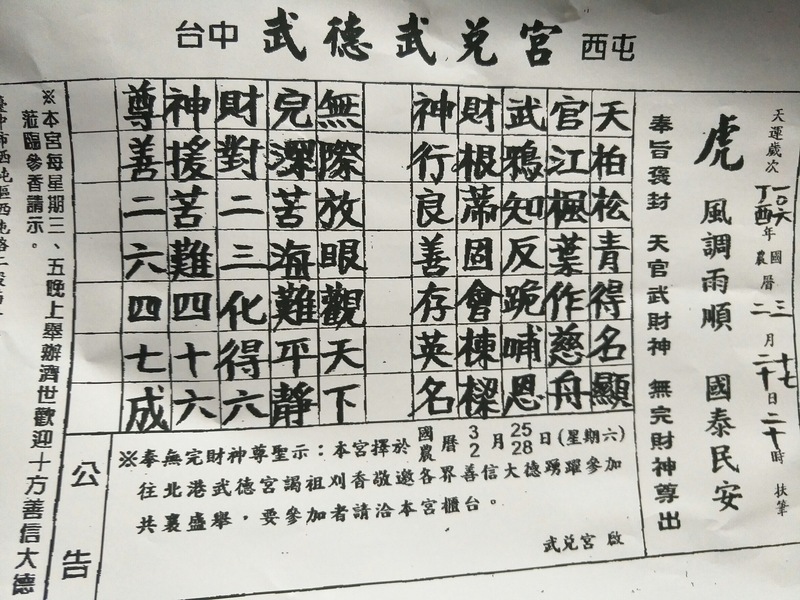 台中 武德武兌宮 西屯
天運歲次一〇六丁酉年國農曆三二月十七二十日二十時 扶筆
虎 風調雨順 國泰民安
奉旨褒封 天官武財神 無完財神尊出
天柏松青得名顯
官江楓葉作慈舟
武鴉知反跪哺恩
財根蒂固會棟樑
神行良善存英名
無際放眼觀天下
完深苦海難平靜
財對二三化得六
神援苦難四十六
尊善二六四七成
公告
※奉無完財神尊聖示：本宮擇於國農曆3 2月25 28日(星期六)
往北港武德宮謁祖刈香敬邀各界善信大德踴躍參加
共襄盛舉，要參加者請洽本宮櫃台。
武兌宮 啟
※本宮每星期三、五晚上舉辦濟世歡迎十方善信大德
蒞臨參香請示。
臺中市西屯區西屯路二段